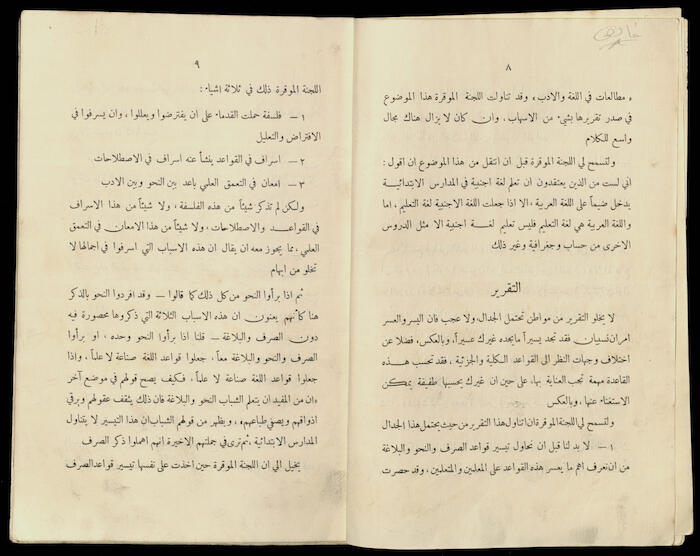 ٨
« مطالعات في اللغة والادب » وقد تناولت اللجنة الموقرة هذا الموضوع
في صدر تقريرها بشيء من الاسهاب ، وان كان لا يزال هناك مجال
واسع للكلام
ولتسمح لي اللجنة الموقرة قبل ان انتقل من هذا الموضوع ان اقول :
اني لست من الذين يعتقدون ان تعلم لغة اجنبية في المدارس الابتدائية
يدخل ضيماً على اللغة العربية ، الا اذا جعلت اللغة الاجنبية لغة التعليم ، اما
واللغة العربية هي لغة التعليم فليس تعليم لغة اجنبية الا مثل الدروس
الاخرى من حساب وجغرافية وغير ذلك
التقرير
لا يخلو التقرير من مواطن تحتمل الجدال ، ولا عجب فان اليسر والعسر
امران نسبيان فقد تجد يسيراً ما يجده غيرك عسيراً ، وبالعكس ، فضلا عن
اختلاف وجهات النظر الى القواعد الكلية والجزئية ، فقد تحسب هـذه
القاعدة مهمة تجب العناية بها ، على حين ان غيرك يحسبها طفيفة يمكن
الاستغناء عنها ، وبالعكس
ولتسمح لي اللجنة الموقرة ان اتناول هذا التقرير من حيث يحتمل هذا الجدال
١ – لا بد لنا قبل ان نحاول تيسير قواعد الصرف والنحو والبلاغة
من ان نعرف اهم ما يعسر هذه القواعد على المعلمين والمتعلمين ، وقد حصرت
٩
اللجنة الموقرة ذلك في ثلاثة اشياء :
١ – فلسفة حملت القدماء على ان يفترضوا ويعللوا ، وان يسرفوا في
الافتراض والتعليل
٢ – اسراف في القواعد ينشأ عنه اسراف في الاصطلاحات
٣ – امعان في التعمق العلمي باعد بين النحو وبين الادب
ولكن لم تذكر شيئاً من هذه الفلسفة ، ولا شيئاً من هذا الاسراف
في القواعـد والاصطلاحات ، ولا شيئاً من هذا الامعان في التعمق
العلمي ، مما يجوز معه ان يقال ان هذه الاسباب التي اسرفوا في اجمالها لا
تخلو من ايهام
ثم اذا برأوا النحو من كل ذلك كما قالوا — وقد افردوا النحو بالذكر
هنا كأنهم يعنون ان هذه الاسباب الثلاثة التي ذكروها محصورة فيه
دون الصرف والبلاغة — قلنا اذا برأوا النحو وحده ، او برأوا
الصرف والنحو والبلاغة معاً ، جعلوا قواعد اللغة صناعة لا علماً ، واذا
جعلوا قواعد اللغة صناعة لا علماً ، فكيف يصح قولهم في موضع آخر
«ان من المفيد ان يتعلم الشباب النحو والبلاغة فان ذلك يثقف عقولهم ويرقي
اذواقهم ويصفي طباعهم» ، ويظهر من قولهم الشباب ان هذا التيسير لا يتناول
المدارس الابتدائية ، ثم ترى في جملتهم الاخيرة انهم اهملوا ذكر الصرف
يخيل الي ان اللجنة الموقرة حين اخذت على نفسها تيسير قواعد الصرف